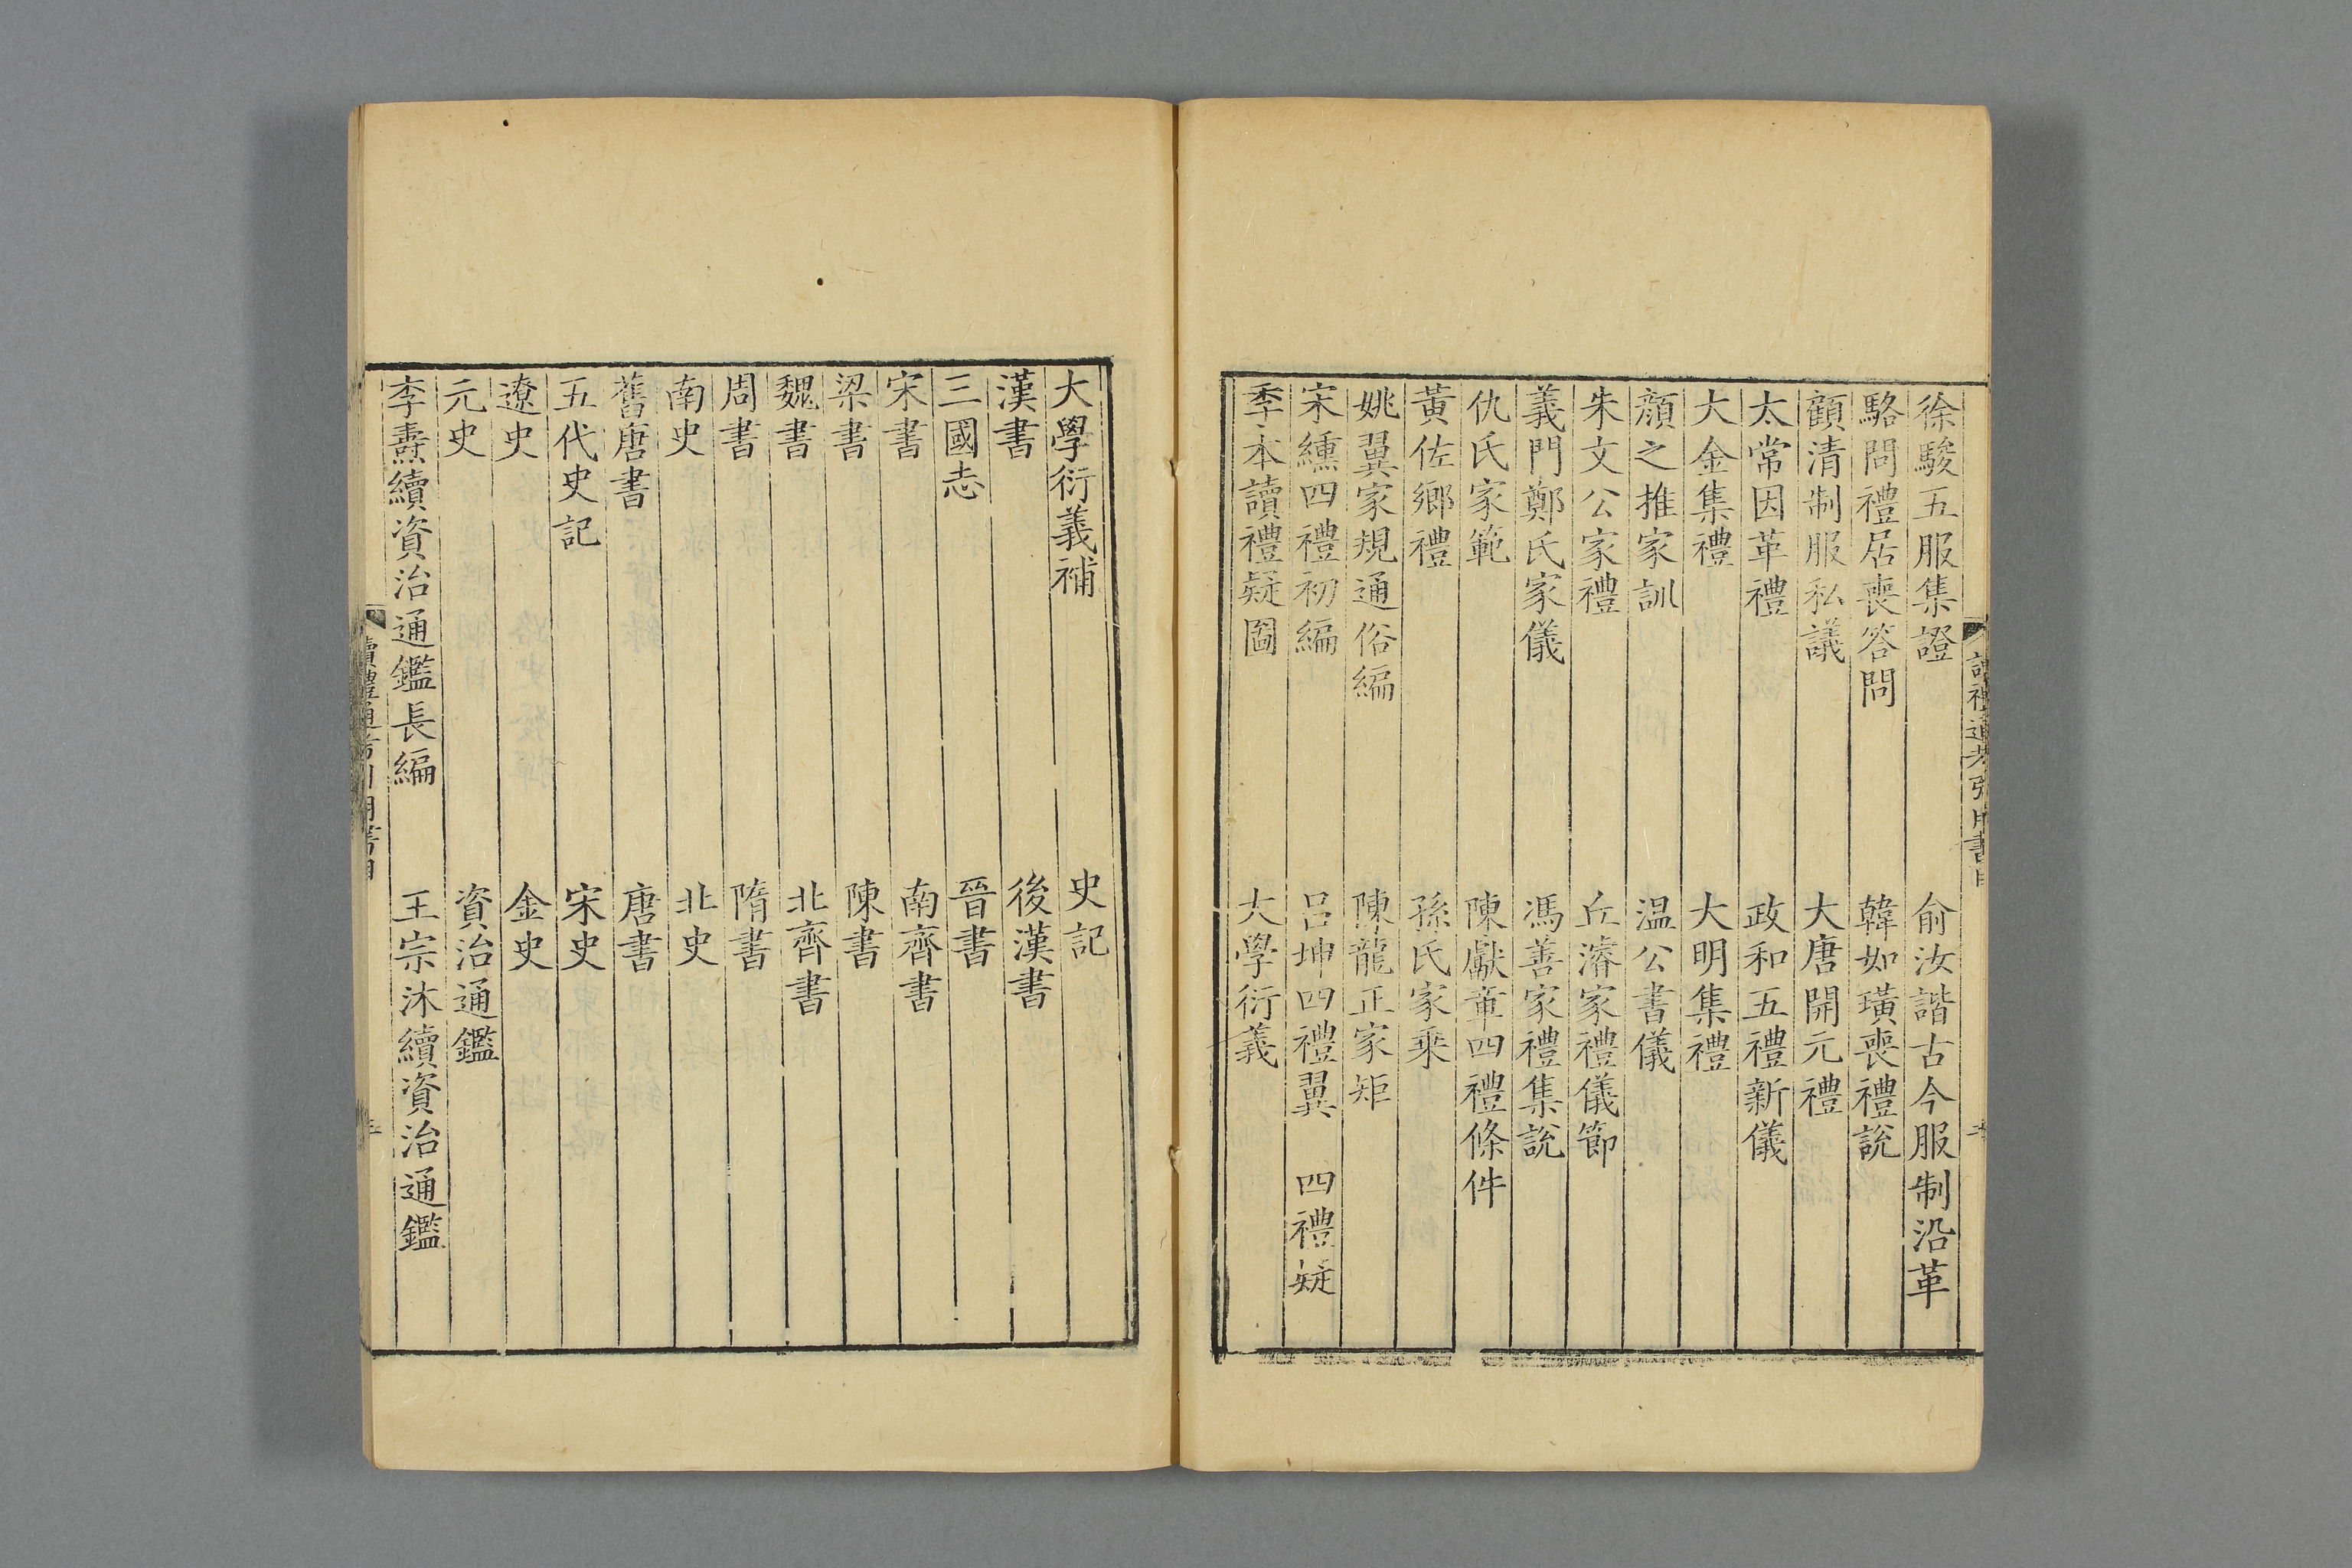 徐駿五服集證　俞汝諧古今服制沿革
駱問禮居喪答問　韓如璜喪禮說
顧清制服私議　大唐開元禮
太常因革禮　政和五禮新儀
大金集禮　大明集禮
顏之推家訓　温公書儀
朱文公家禮　丘濬家禮儀節
義門鄭氏家儀　馮善家禮集說
仇氏家範　陳獻章四禮條件
黃佐鄉禮　孫氏家乘
姚翼家規通俗編　陳龍正家矩
宋纁四禮初編　呂坤四禮翼　四禮疑
季本讀禮疑圖　大學衍義
大學衍義補　史記
漢書　後漢書
三國志　晉書
宋書　南齊書
梁書　陳書
魏書　北齊書
周書　隋書
南史　北史
舊唐書　唐書
五代史記　宋史
遼史　金史
元史　資治通鑑
李燾續資治通鑑長編　王宗沐續資治通鑑